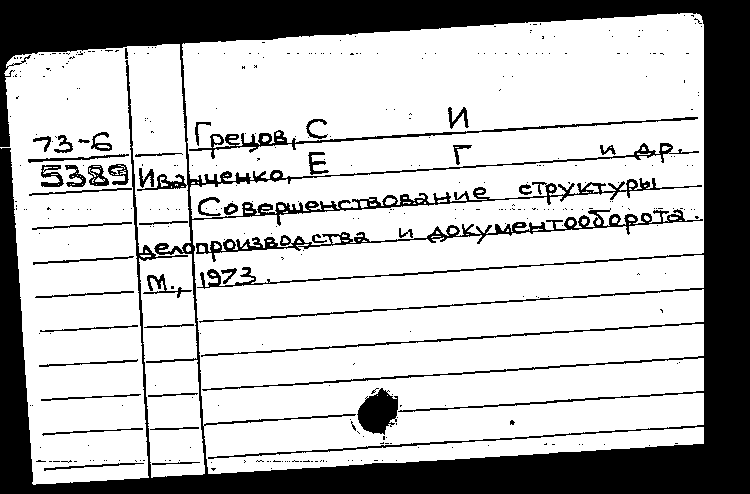 73-6 Грецов, С И
5389 Иванченко, Е Г и др.
Совершенствование структуры
делопроизводства и документооборота.
М., 1973.